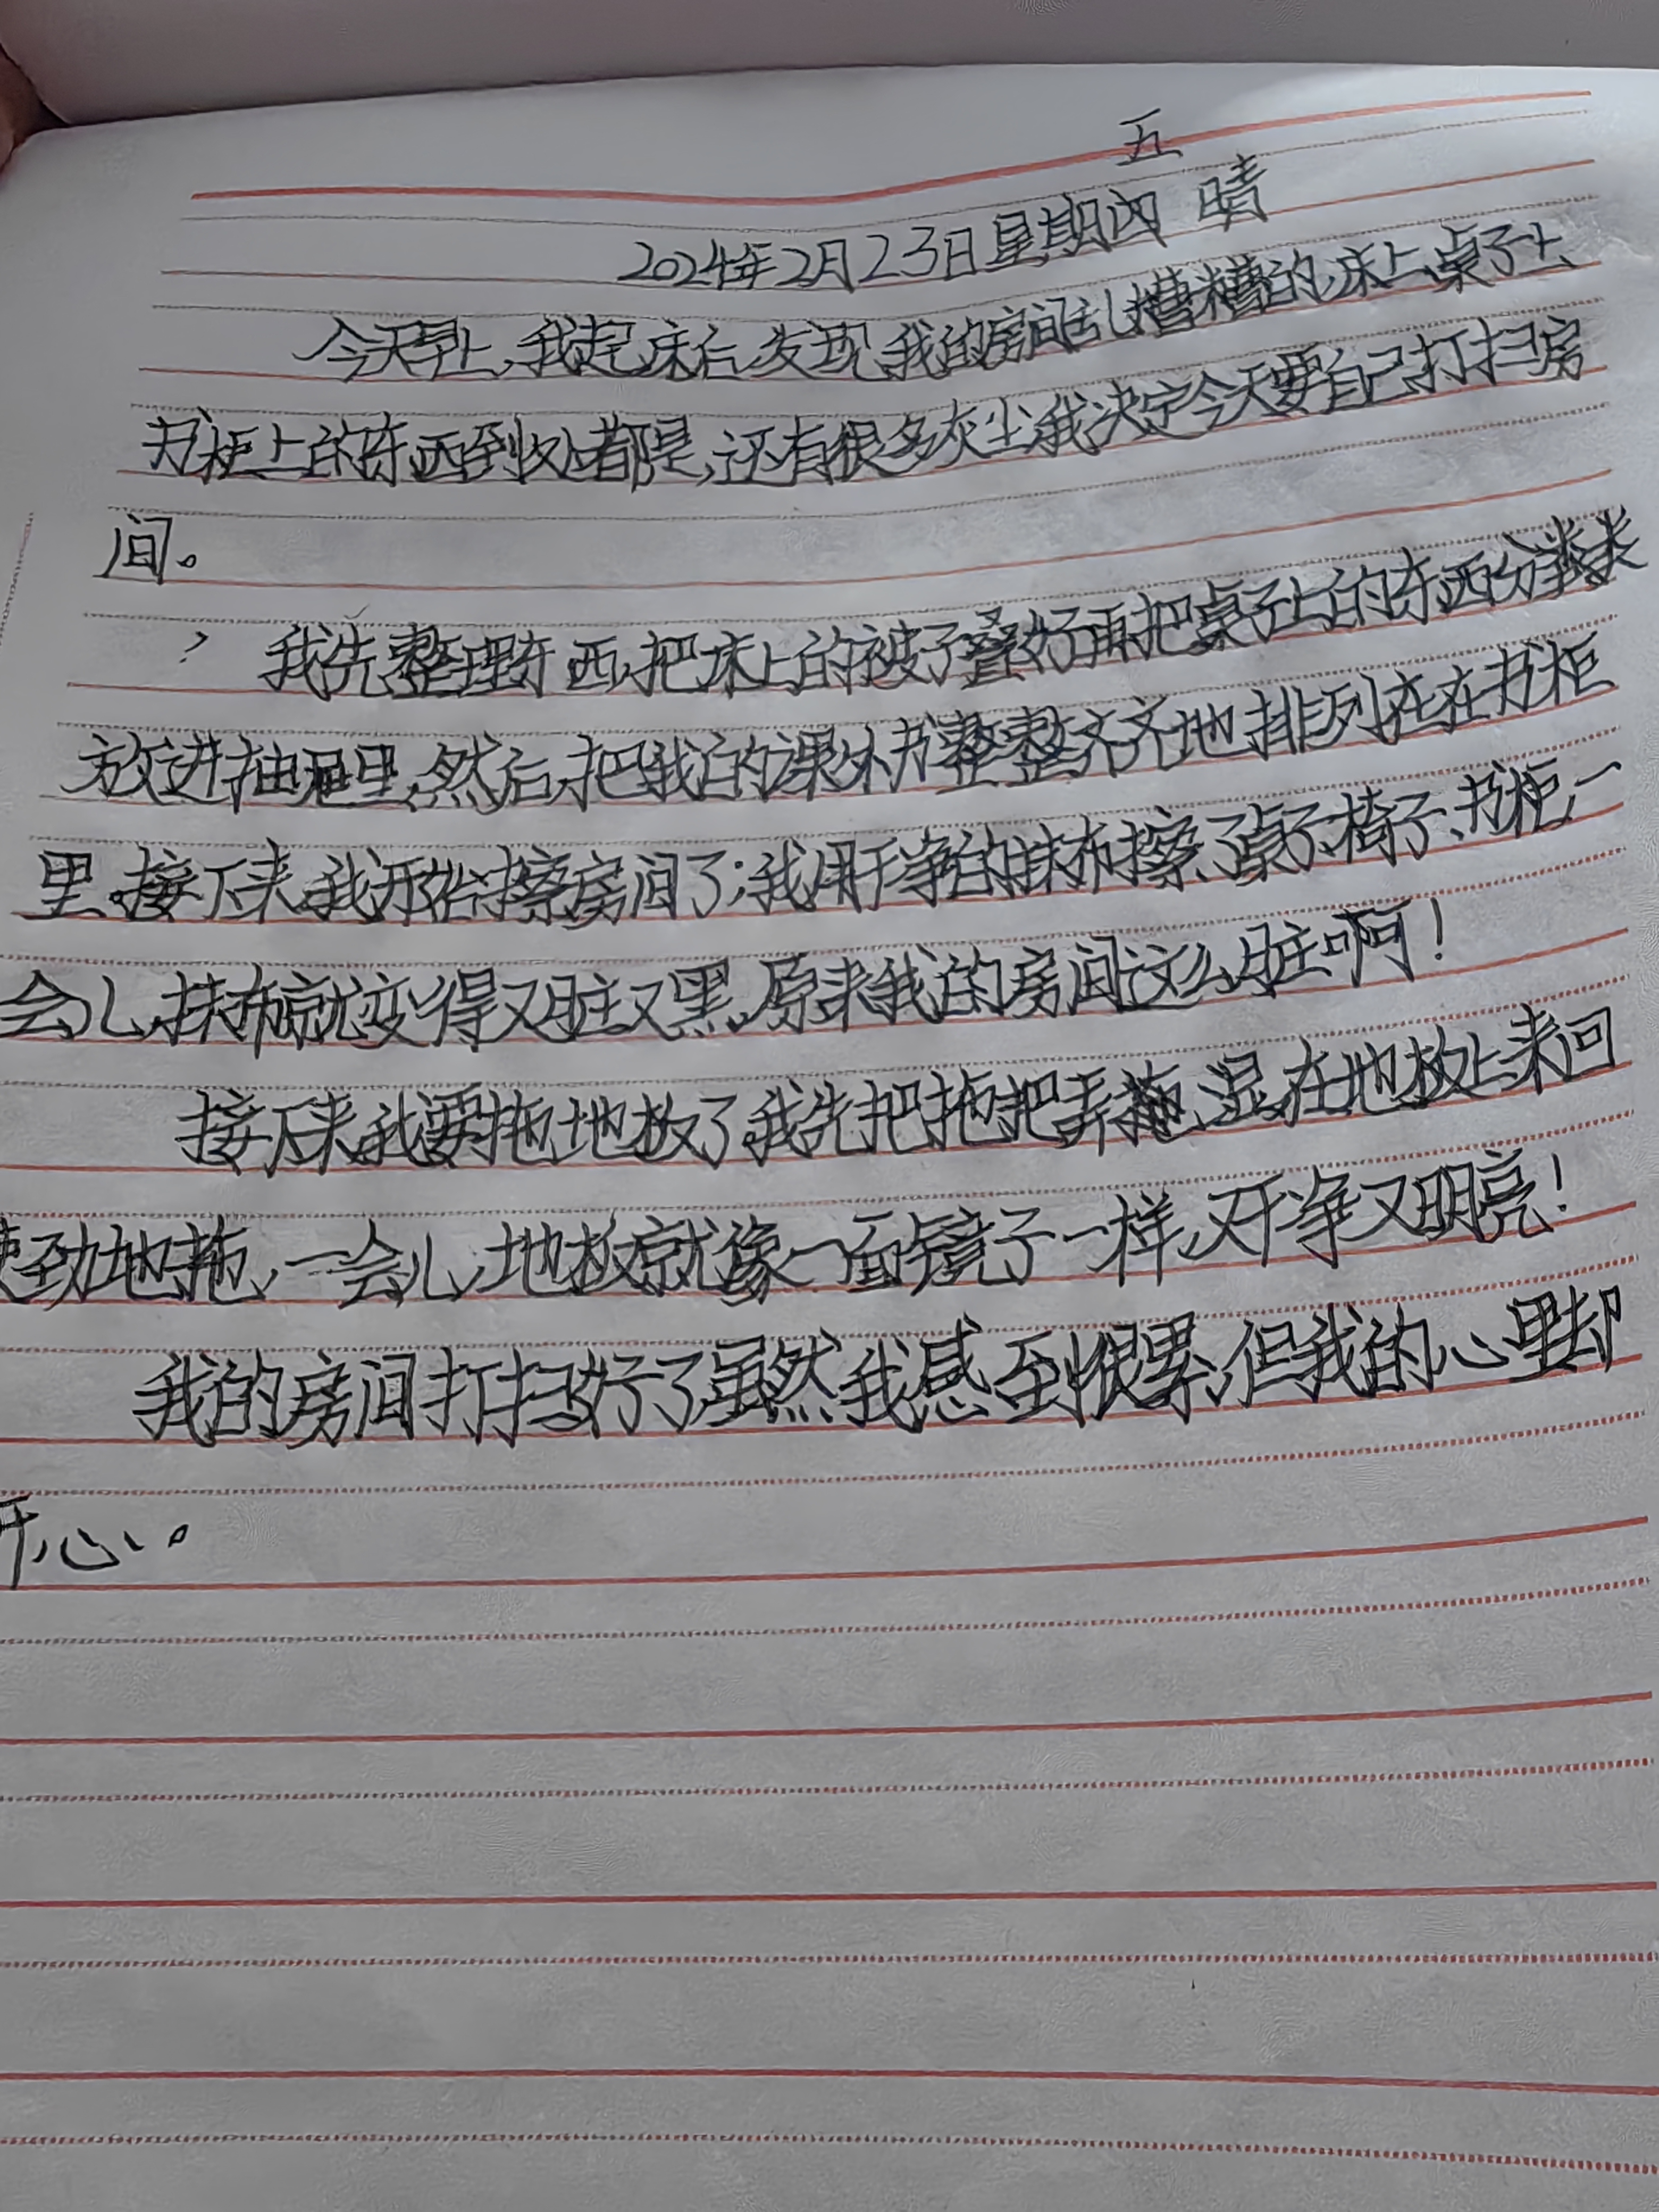 五
2024年2月23日星期四 晴
今天早上,我起床后,发现,我的房间乱糟糟的,床上,桌子上、
书柜上的东西到处都是,还有很多灰尘,我决定今天要自己打扫房
间。
我先整理东西,把床上的被子叠好再把桌子上的东西分类
放进抽屉里,然后,把我的课外书整整齐齐地排列在在书柜
里,接下来,我开始擦房间了;我用干净的抹布擦了桌子、椅子、书柜,一
会儿,抹布就变得又脏又黑,原来我的房间这么脏啊!
接下来,我要拖地板了,我先把拖把弄湿,在地板上来回
使劲地拖,一会儿,地板就像一面镜子一样,又干净又明亮!
我的房间打扫好了虽然我感到很累,但我的心里却
开心。